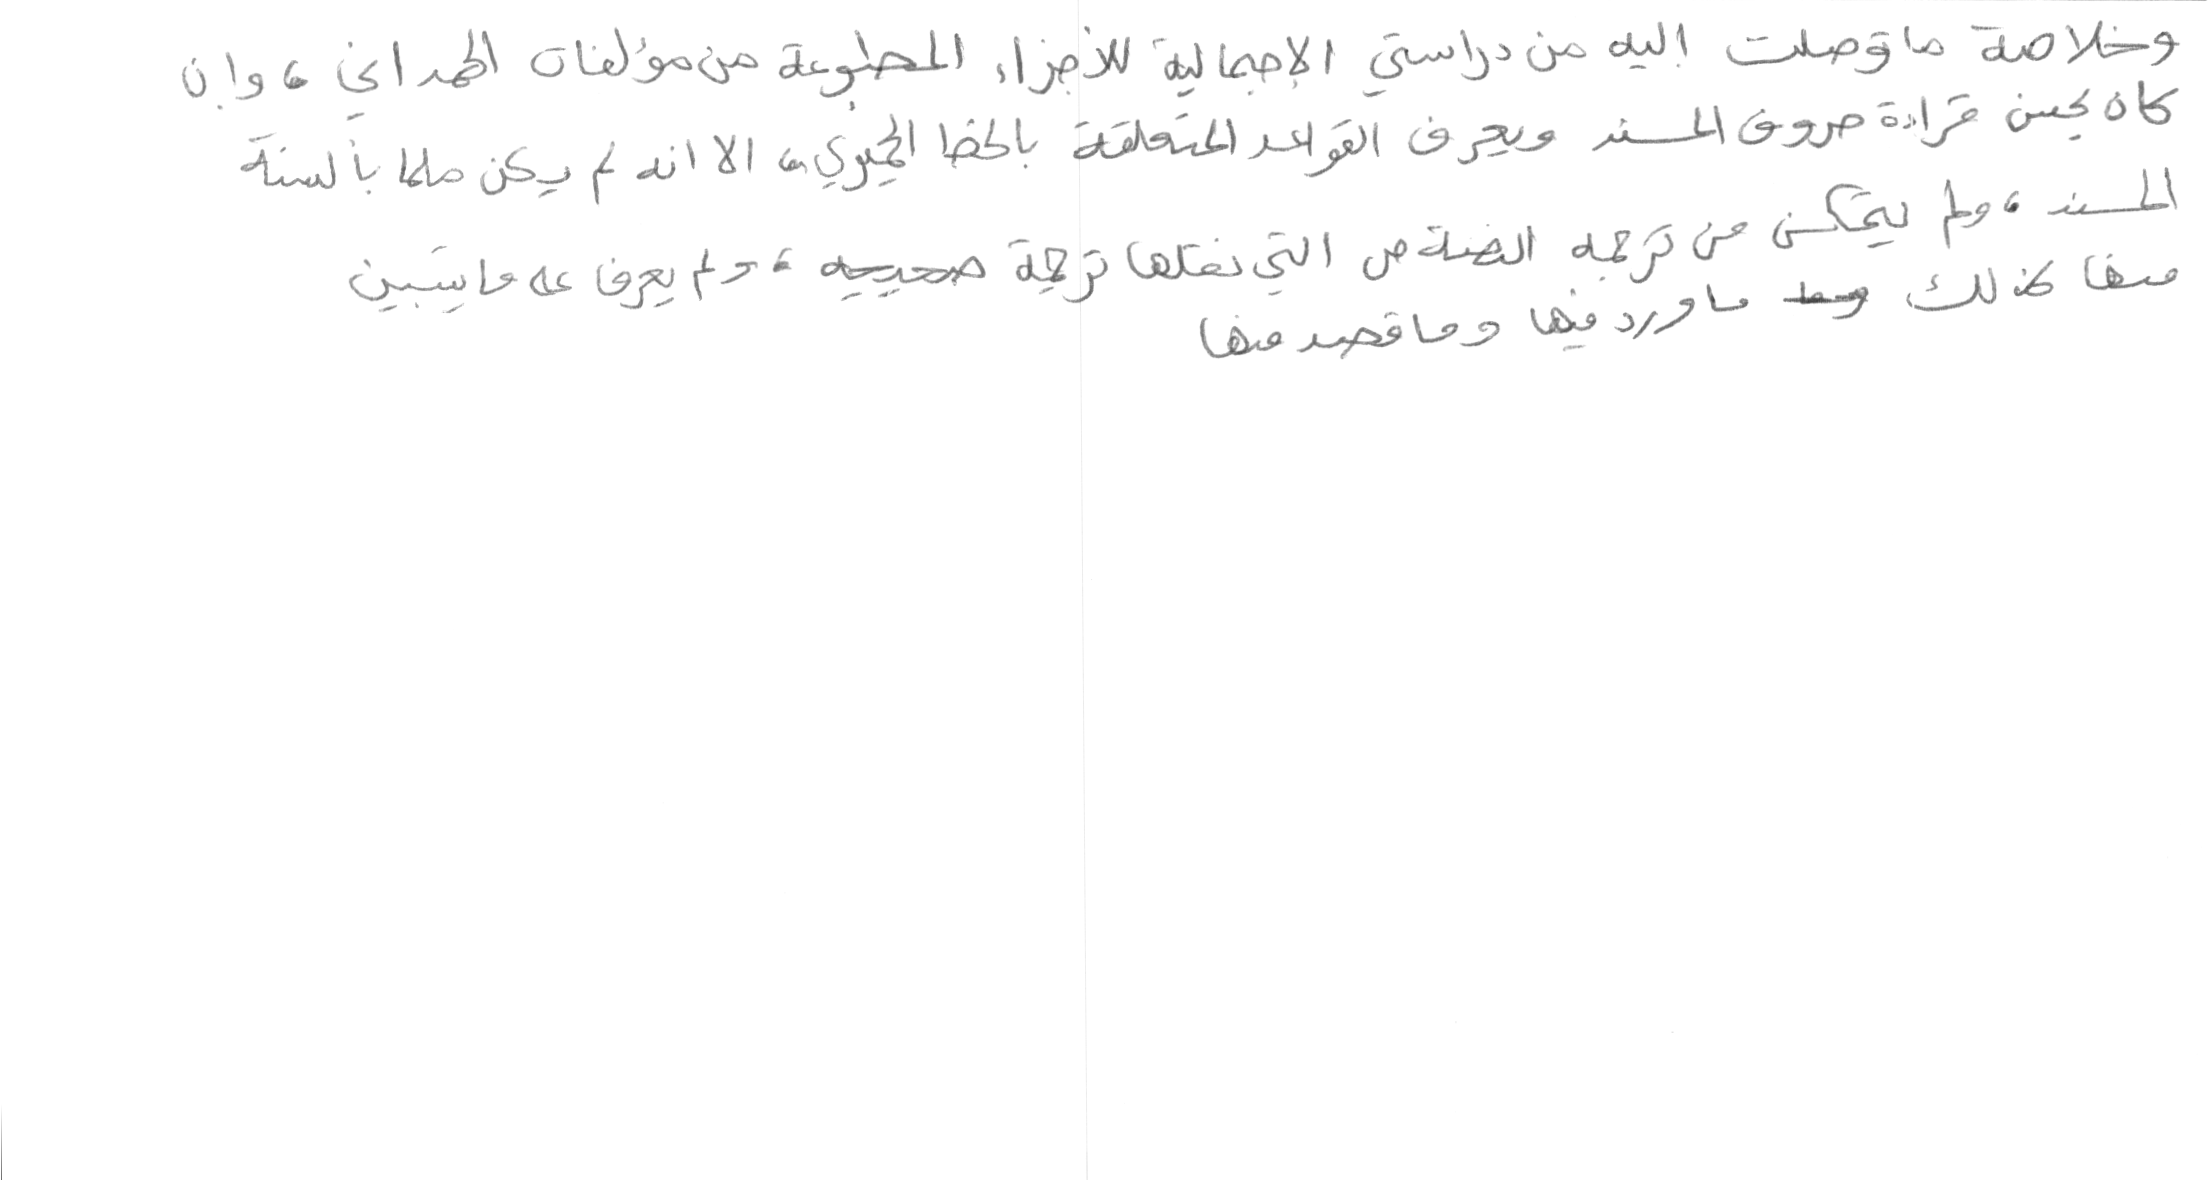 وخلاصة ما توصلت إليه من دراستي الإجمالية للأجزاء المطبوعة من مؤلفات الهمداني، وإن
كان يحسن قراءة حروف المسند ويعرف القواعد المتعلقة بالخط الحميري، الا انه لم يكن ملما بألسنة
المسند، ولم يتمكن من ترجمه التي نقلها ترجمة صحيحه، ولم يعرف ما يتبين
منها كذلك ما ورد فيها وما قصد منها